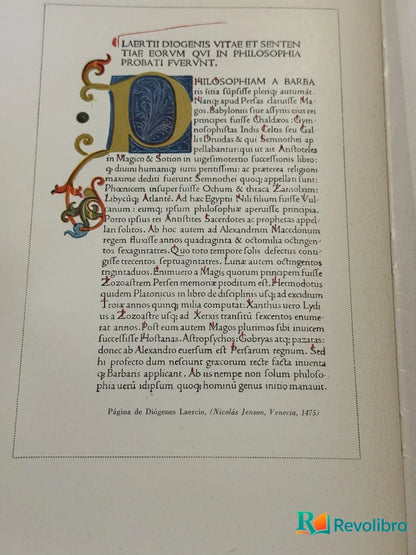 LAERTII DIOGENIS VITAE ET SENTEN
TIAE EORVM QVI IN PHILOSOPHIA
PROBATI FVERVNT.
PHILOSOPHIAM A BARBA
ris initia sūpsisse pleriq; autumāt.
Nanq; apud Persas claruisse Ma
gos. Babyloniis siue assyriis eius rei
principes fuisse Chaldæos: Gym
nosophistas Indis Celtis seu Gal
lis Druidas & qui Semnothei ap
pellabantur: qui ut ait Aristoteles
in Magico & Sotion in uigesimotertio successionis libro:
q; diuini humaniq; iuris peritissimi: ac præterea religioni
maxime dediti fuerunt Semnothei quoq; appellati sunt:
Phœnicem insuper fuisse Ochum & thraca Zamolxim:
Libycūq; Atlantē. Ad hæc Egyptii Nili filium fuisse Vul
canum: eumq; ipsum philosophiæ aperuisse principia.
Porro ipsius rei Antistites Sacerdotes ac prophetas appel
lari solitos. Ab hoc autem ad Alexandrum Macedonum
regem fluxisse annos quadraginta & octomilia octingen
tosexagintatres. Quo toto tempore solis defectus conti
gisse trecentos septuagintatres. Lunæ autem octingentos
trigintaduos. Enimuero a Magis quorum principem fuisse
Zozoastrem Persen memoriæ proditum est. Hermodotus
quidem Platonicus in libro de disciplinis usq; ad exidium
Troiæ annos quinq; milia computat. Xanthus uero Lydiu
us a Zozoastre usq; ad Xerxis transitū sexcentos enume
rat annos. Post eum autem Magos plurimos sibi inuicem
successisse Hostanas. Astropsychos: Gobryas atq; pazatas:
donec ab Alexandro euersum est Persarum regnum. Sed
hi profecto dum nesciunt græcorum recte facta inuenta
q; Barbaris applicant. Ab iis nempe non solum philoso
phia uerū idipsum quoq; hominū genus initio manauit.
Página de Diógenes Laercio. (Nicolás Jenson, Venecia, 1475)
Revolibro